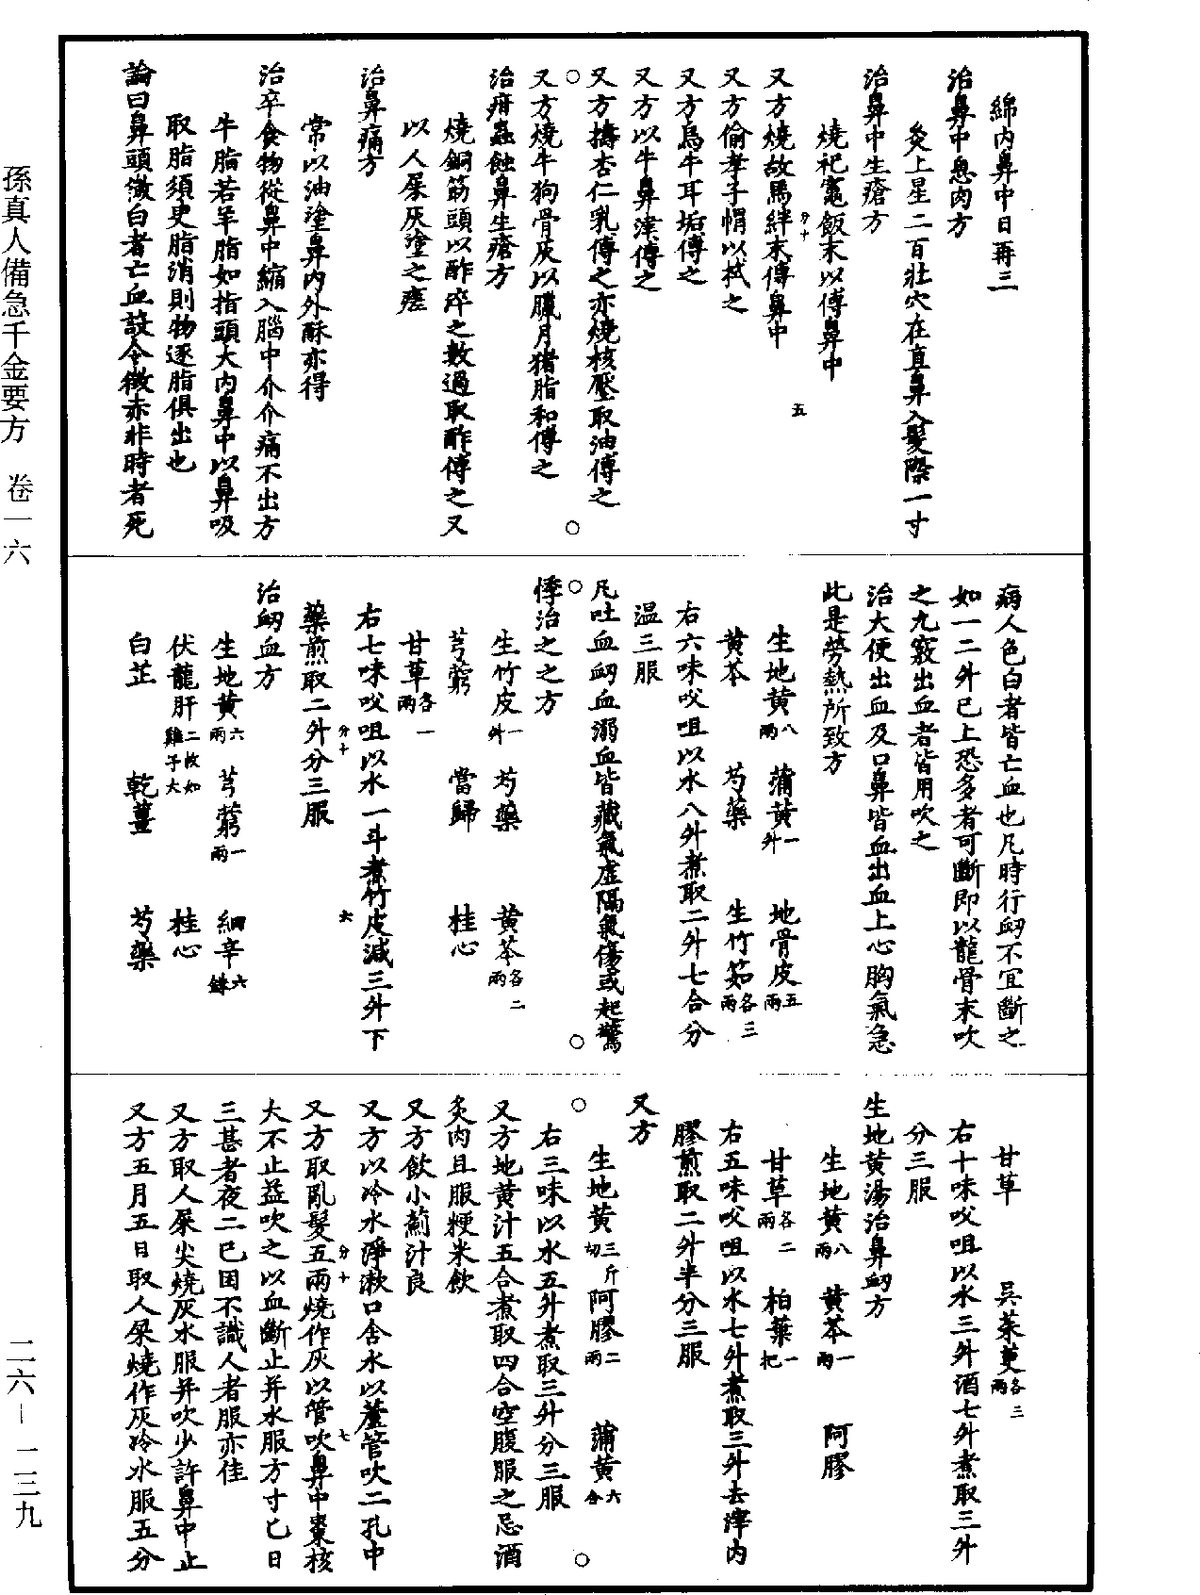 綿內鼻中日再三
治鼻中息肉方
灸上星二百壯穴在直鼻入髮際一寸
治鼻中生瘡方
燒祀竈飯末以傅鼻中
又方燒故馬絆末傅鼻中
又方偷孝子帽以拭之
又方烏牛耳垢傅之
又方以牛鼻津傅之
又方擣杏仁乳傅之亦燒核壓取油傅之
又方燒牛狗骨灰以臘月猪脂和傅之
治疳蟲蝕鼻生瘡方
燒銅筋頭以酢淬之數過取酢傅之又
以人屎灰塗之瘥
治鼻痛方
常以油塗鼻內外酥亦得
治卒食物從鼻中縮入腦中介介痛不出方
牛脂若羊脂如指頭大內鼻中以鼻吸
取脂須臾脂消則物逐脂俱出也
論曰鼻頭微白者亡血設令微赤非時者死
病人色白者皆亡血也凡時行衂不宜斷之
如一二升已上恐多者可斷即以龍骨末吹
之九竅出血者皆用吹之
治大便出血及口鼻皆血出血上心胸氣急
此是勞熱所致方
生地黃八兩 蒲黃一升 地骨皮五兩
黃芩 芍藥 生竹茹各三兩
右六味㕮咀以水八升煮取二升七合分
温三服
凡吐血衂血溺血皆藏氣虛隔氣傷或起驚
悸治之之方
生竹皮一升 芍藥 黃芩各二兩
芎藭 當歸 桂心
甘草各一兩
右七味㕮咀以水一斗煮竹皮減三升下
藥煎取二升分三服
治衂血方
生地黃六兩 芎藭一兩 細辛六銖
伏龍肝二枚如雞子大 桂心
白芷 乾薑 芍藥
甘草 吳茱萸各三兩
右十味㕮咀以水三升酒七升煮取三升
分三服
生地黃湯治鼻衂方
生地黃八兩 黃芩一兩 阿膠
甘草各二兩 柏葉一把
右五味㕮咀以水七升煮取三升去滓內
膠煎取二升半分三服
又方
生地黃三斤切 阿膠二兩 蒲黃六合
右三味以水五升煮取三升分三服
又方地黃汁五合煮取四合空腹服之忌酒
炙肉且服粳米飲
又方飲小薊汁良
又方以冷水淨漱口含水以蘆管吹二孔中
又方取亂髮五兩燒作灰以管吹鼻中棗核
大不止益吹之以血斷止并水服方寸匕日
三甚者夜二已困不識人者服亦佳
又方取人屎尖燒灰水服并吹少許鼻中止
又方五月五日取人屎燒作灰冷水服五分
孫真人備急千金要方 卷一六
二六-一三九